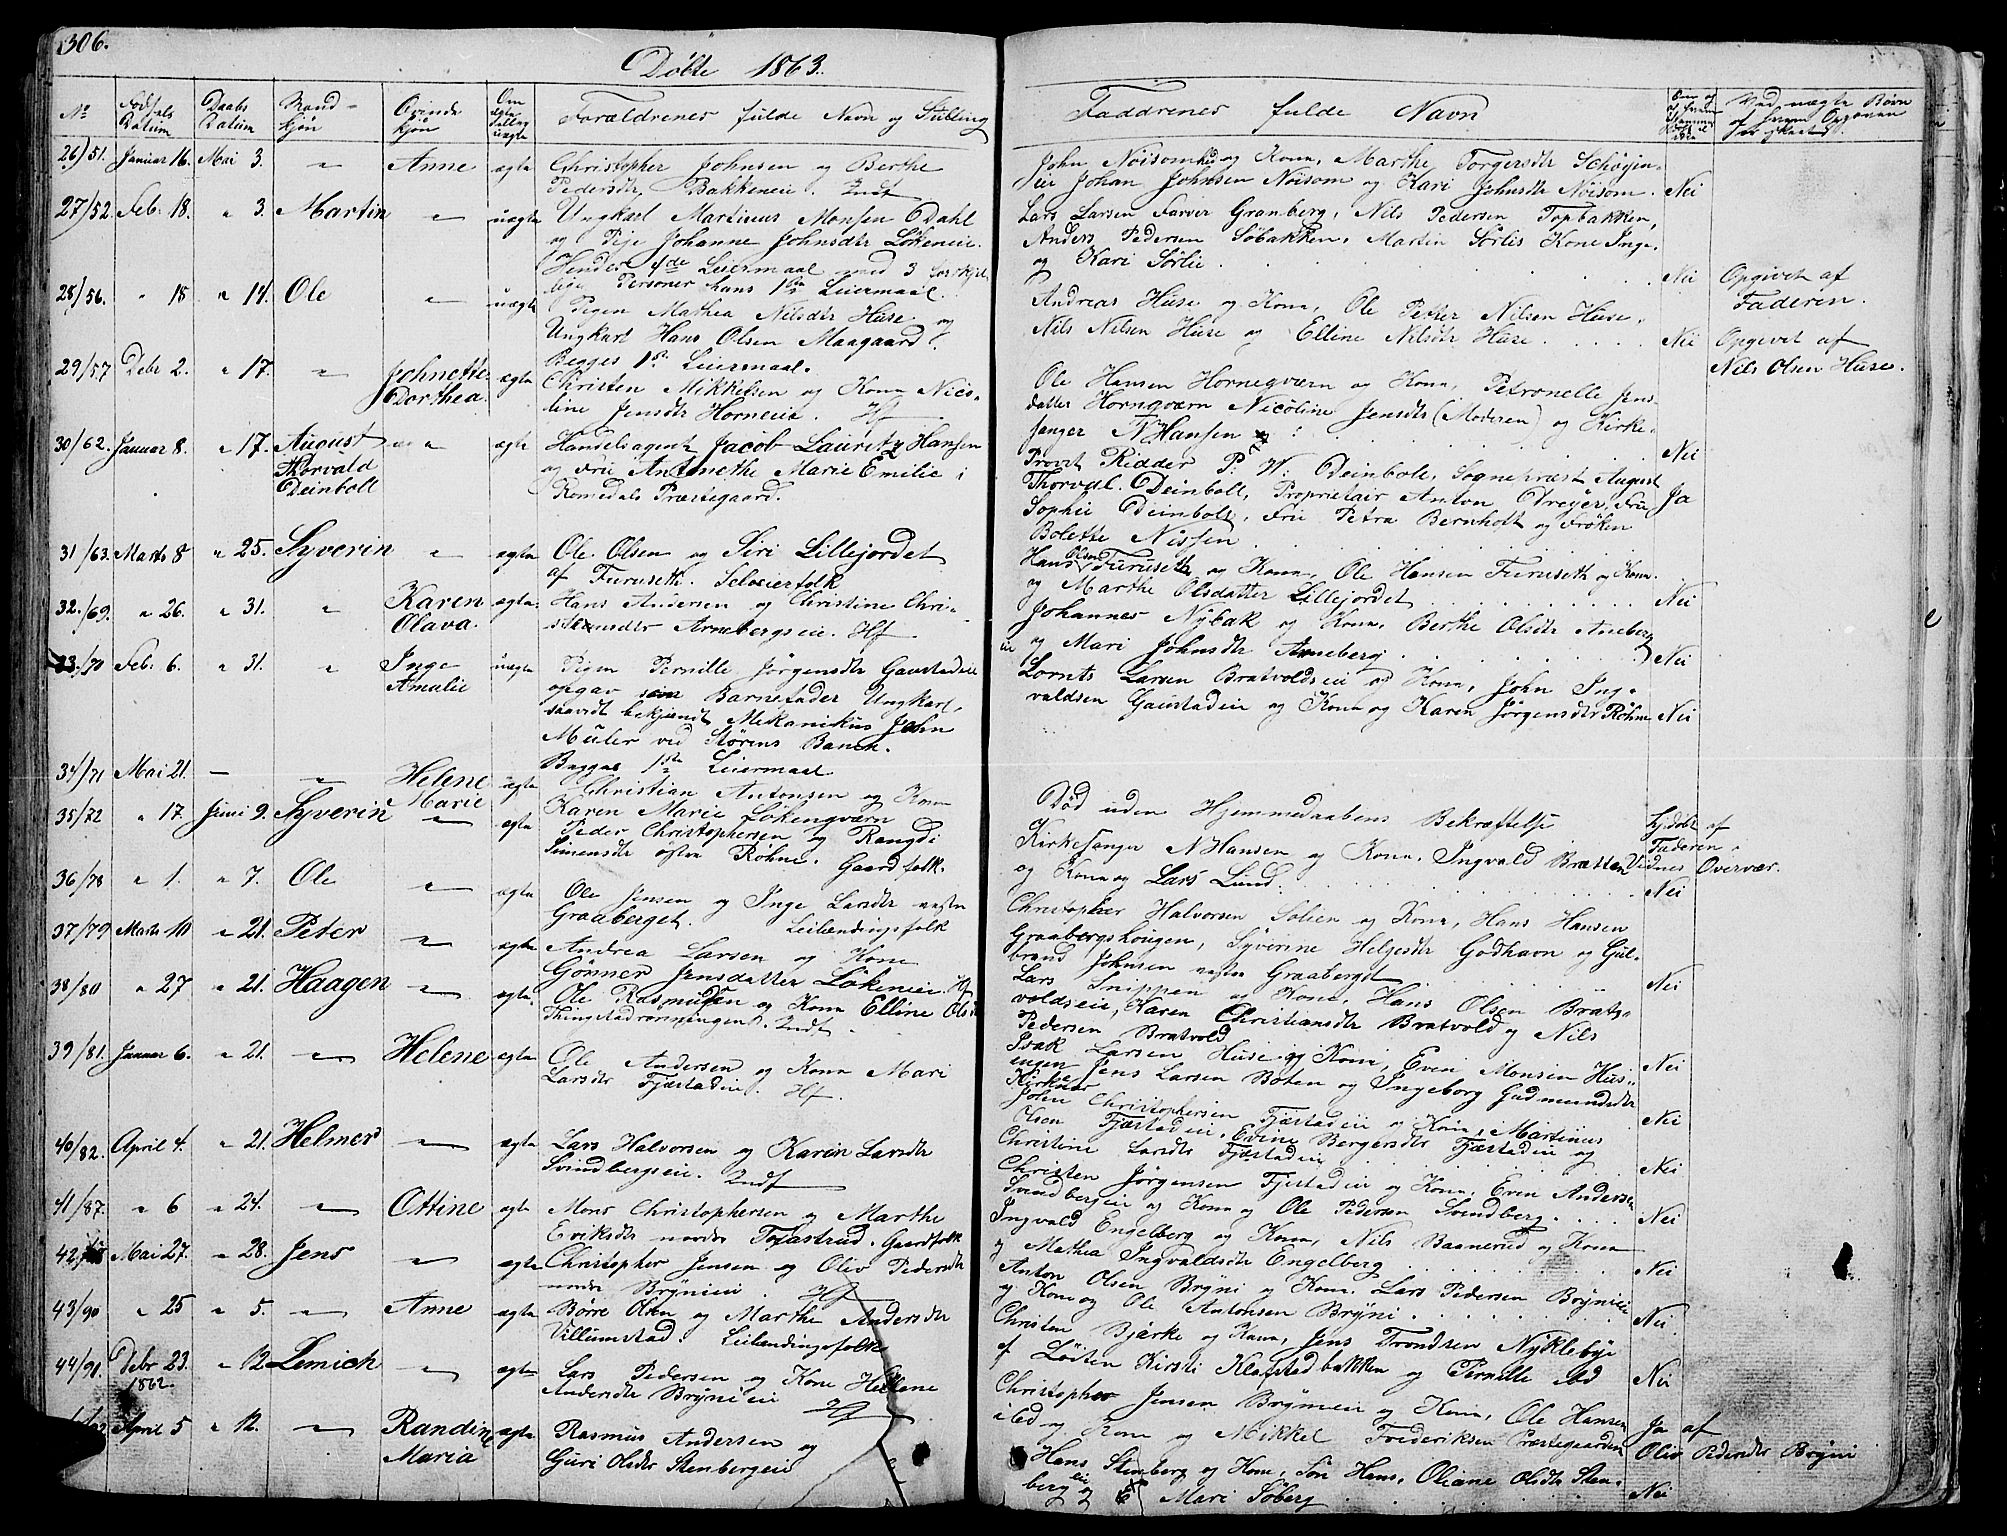 306.
Döbte 1863.
No
Födsels Datum
Daabs Datum
Mand-kjön
Qvinde kjön
Om ægte eller uægte
Forældrenes fulde Navn og Stilling
Faddrenes fulde Navn
Ved uægte Börn af hvem Opgaven
26/51. Januar 16. Mai 3. " Anne ægte Christopher Johnsen og Berthe
Pedersdtr Bakkeneie. Indt
John Noisomhed og Kone, Marthe Torgersdtr Schöyen-
eie Johan Johnsen Noisom og Kari Johnsdtr Noisom. Nei
27/52. Feb. 18. " 3. Martin " uægte Ungkarl Martinus Monsen Odahl
og Pige Johanne Johnsdtr Lökeneie.
Hendes 4de Leiermaal med 3 forskjel
lige Personer hans 1ste Leiermaal.
Lars Larsen Farver Granberg, Nils Pedersen Topbakken,
Anders Pedersen Söbakken, Martin Sörlis Kone Inge,
og Kari Sörlie. Nei Opgivet af
Faderen.
28/56. " 18 " 14. Ole " uægte Pigen Mathea Nilsdtr Huse og
Ungkarl Hans Olsen Maagaard.
Begges 1ste Leiermaal.
Andreas Huse og Kone, Ole Petter Nilsen Huse,
Nils Nilsen Huse og Elline Nilsdtr Huse. Nei Opgivet af
Nils Olsen Huse.
29/57 Debr 2. " 17. " Johnette Dorthea. ægte Christen Mikkelsen og Kone Nico-
line Jensdtr Horneie. Hf
Ole Hansen Horneqværn og Kone, Petronelle Jens-
datter Hornqværn Nicoline Jensdtr (Moderen) og Kirke-
sanger N Hansen Nei
30/62. Januar 8. " 17. August Thorvald Deinboll " ægte Handelsagent Jacob Lauritz Hansen
og Frue Antonethe Marie Emilie i
Romedals Præstegaard.
Provst Ridder P. W. Deinboll, Sognepræst August
Thorvdl. Deinboll, Proprietair Anton Dreyer, Frue Ja
Sophie Deinboll, Frue Petra Bernhoft og Fröken
Bolette Nissen
31/63. Marts 8 " 25. Syverin " ægte Ole Olsen og Siri Lillejordet
af Furuseth. Selveierfolk
Hans Olsen Furuseth og Kone, Ole Hansen Furuseth og Kone
og Marthe Olsdatter Lillejordet Nei
32./69. " 26. " 31. " Karen Olava. ægte. Hans Andersen og Christine Chri-
stensdtr Arnebergseie. Hf
Johannes Nybak og Kone, Berthe Olsdtr Arneberg
eie og Mari Johnsdtr Arneberg. Nei
33/70 Feb. 6. " 31. " Inge Amalie uægte Pigen Pernille Jörgensdtr Gaustadeie
opgav som Barnefader Ungkarl,
saavidt bekjendt Mekanikus John
Müler ved Störens Banen.
Begges 1ste Leiermaal
Lornts Larsen Bratvoldseie og Kone, John Ing-
valdsen Gaustadeie og Kone og Karen Jörgensdtr Röhne Nei
34/71 Mai 21. — " Helene Marie ægte Christian Antonsen og Kone
Karen Marie Lökenqværn
Död uden Hjemmedaabens Bekræftelse Hjdöbt af
Faderen.
Vidnes Overvær.
35/72 " 17. Juni 9. Syverin " ægte Peder Christophersen og Rangdi
Simensdtr östre Röhne. Gaardfolk.
Kirkesanger N Hansen og Kone, Ingvald Bratten
og Kone og Lars Lund. Nei
36/78 " 1. " 7. Ole " ægte Ole Jensen og Inge Larsdtr vestre
Graaberget. Leilændingsfolk
Christopher Halvorsen Solien og Kone, Hans Hansen
Graabergshougen, Syverine Helgesdtr Godhavn og Gul-
brand Johnsen vestre Graaberget Nei
37/79 Marts 10 " 21. Peter " ægte Andrea Larsen og Kone
Gönner Jensdatter Lökeneie. Hf
Lars Snippen og Kone, Hans Olsen Bratv-
voldseie, Karen Christiansdtr Bratvold og Nils
Pedersen Bratvold Nei
38/80 " 27 " 21. Haagen " ægte. Ole Rasmusen og Kone Elline Olsdtr
Thingstadrönningen. Indt.
Isak Larsen Huse og Kone, Even Monsen Hus-
engen Jens Larsen Boten og Ingeborg Gudmundsdtr
Kirkner Nei
39/81. Januar 6. " 21. " Helene ægte Ole Andersen og Kone Mari
Larsdtr Fjæstadeie. Hf.
John Christophersen Fjæstadeie og Kone, Martinus
Olsen Fjæstadeie, Evine Bergersdtr Fjæstadeie og
Christine Larsdtr Fjæstadeie Nei
40/82. April 4. " 21. Helmer " ægte Lars Halvorsen og Karen Larsdtr
Svindbergseie. Indt
Christen Jörgensen Fjestadeie og Kone, Even Andersen
Svindbergeie og Kone og Ole Pedersen Svindberg. Nei
41/87. " 6 " 24. " Ottine ægte Mons Christophersen og Marthe
Eriksdtr nordre Tofastrud. Gaardfolk
Ingvald Engelberg og Kone, Nils Baanerud og Kone
og Mathea Ingvaldsdtr Engelberg Nei
42/88 Mai 27. " 28. Jens " ægte Christopher Jensen og Olev Pedersdtr
nordre Bryneie. Hf
Anton Olsen Bryni og Kone. Lars Pedersen Brynieie
og Kone og Ole Antonsen Bryni. Nei.
43/90 " 25 " 5. " Anne ægte Börre Olsen og Marthe Andersdtr
Villumstad. Leilændingsfolk
Christen Bjærke og Kone, Jens Trondsen Nyklebye
af Löiten Kirsti Klæstadbakken og Pernille Led Nei
44/91. Debr 23. 1862. " 12 Lemich " ægte Lars Pedersen og Kone Helene
Andersdtr Brynieie Hf
Christopher Jensen Brynieie og Kone, Ole Hansen Ja af
i Led og Kone og Mikkel Frederiksen Præstegaarden Olev Pedersdtr Bryni
April 5 " 12. " Randine Maria ægte Rasmus Andersen og
Guri Olsdtr Stenbergeie
Hans Stenberg og Kone, Sön Hans, Oliane Olsdtr Sten-
berg eie og Mari Söberg Nei